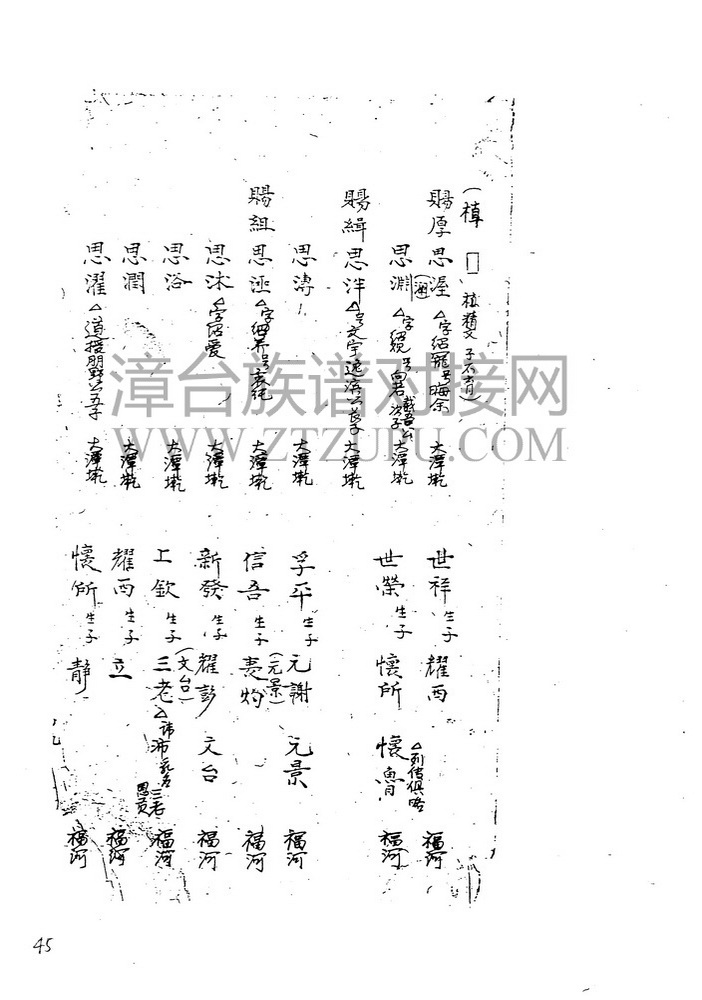 (植 □ 植精文 子不育)
賜厚 思渥 △字紹寵号晦余 大潭墘
思淵 △字紹貌号向若 截吾公次子 大潭墘
賜緝 思泮 △文宇逸濱公長子 大潭墘
思溥 大潭墘
賜組 思涵 △字紹养号衷純 大潭墘
思沐 △字紹爱 大潭墘
思浴 大潭墘
思潤 大潭墘
思濯 △道援朋野公五子 大潭墘
世祥 生子 耀西 △列传俱略 福河
世榮 生子 懷所 懷魯 福河
孚平 生子 元謝 元景 福河
信吾 生子 (元景) 表灼 福河
新發 生子 耀彭 (文台) 文台 福河
上欽 生子 三老 △讳沛 三老 思贡 福河
耀西 生子 立 福河
懷所 生子 靜 福河
45
漳台族谱对接网
WWW.ZTZUPU.COM